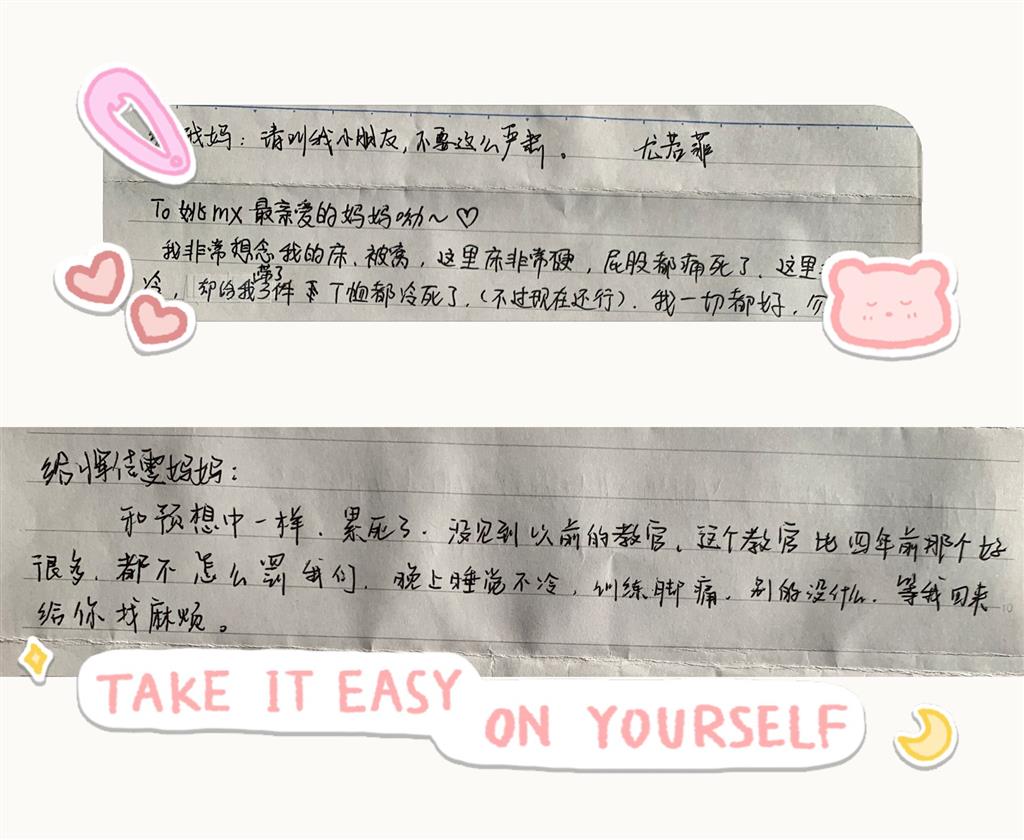 我妈：请叫我小朋友，不要这么严肃。 尤若菲
To 姚mx 最亲爱的妈妈呦～♡
我非常想念我的床、被窝，这里床非常硬，屁股都痛死了、这里
冷，却给我 带了 件 T恤都冷死了，（不过现在还行）. 我一切都好，勿
给恽倩雯妈妈：
和预想中一样，累死了. 没见到以前的教官，这个教官比四年前那个好
很多，都不怎么罚我们，晚上睡觉不冷，训练脚痛，别的没什么，等我回来
给你找麻烦。
TAKE IT EASY
ON YOURSELF